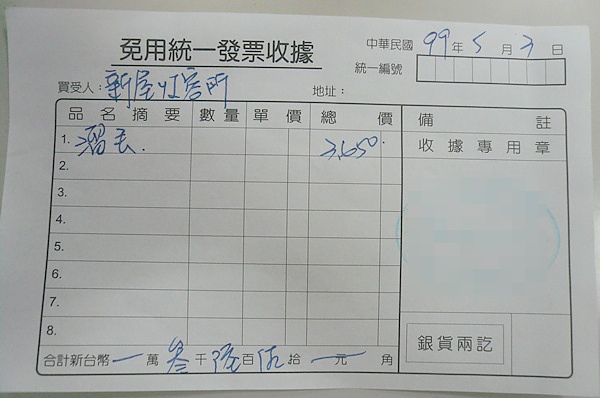 免用統一發票收據
中華民國 99 年 5 月 3 日
統一編號
買受人： 新屋
地址：
品名摘要 數量 單價 總價 備註
1. 3,650.
收據專用章
2.
3.
4.
5.
6.
7.
8.
銀貨兩訖
合計新台幣 一 萬 叁 千 陸 百 伍 拾 一 元 角